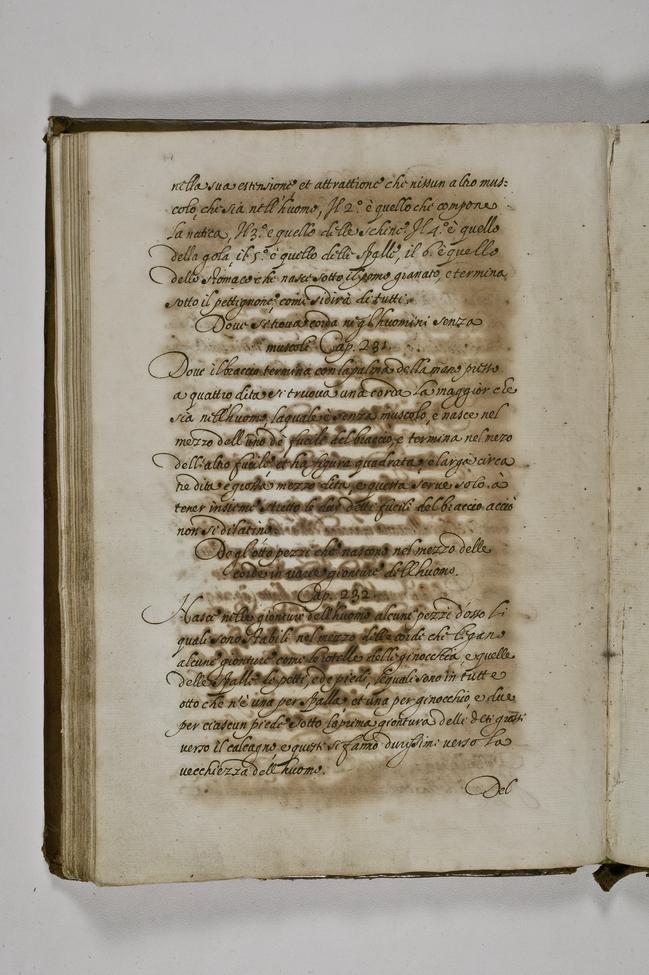 nella sua estensione et attrattione che nissun altro mus=
colo, che sia nell'huomo, Il 2.º è quello che compone
la natica, Il 3.º e quello delle schine. Il 4.º è quello
della gola, il 5.º è quello delle spalle, il 6. è quello
dello stomaco che nasce sotto il pomo granato, e termina
sotto il pettignone, come si dirà di tutti.
Dove si trova corda negl'huomini senza
muscoli. Cap. 231.
Dove il braccio termina con la palma della mano presso
a quattro dita si truova una corda la maggior che
sia nell'huomo, laquale è senza muscolo, e nasce nel
mezzo dell'uno de fucili del braccio, e termina nel mezo
dell'altro fucile et ha figura quadrata, e larga circa
tre dita e grossa mezzo dita, e questa serve solo a
tener insieme stretto le due detti fucili del braccio acciò
non si dilatino.
Degl'otto pezzi che nascono nel mezzo delle
corde in varie gionture dell'huomo.
Cap. 232.
Nasce nelle gionture dell'huomo alcuni pezzi d'osso li
quali sono stabili nel mezzo delle corde che legano
alcune gionture come le rotelle delle ginocchia, e quelle
delle spalle le petti, e de piedi, lequali sono in tutte
otto che n'è una per spalla et una per ginocchio, e due
per ciascun piede sotto la prima giontura delli deti grossi
verso il calcagno e questi si fanno durissimi verso la
vecchiezza dell'huomo.
Del